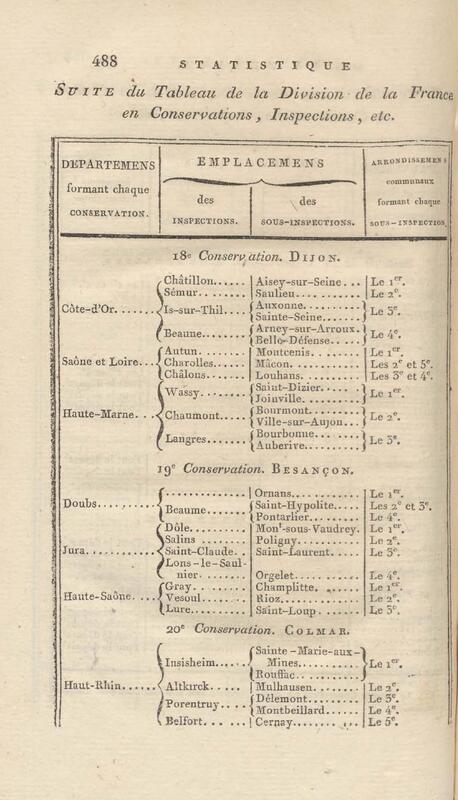 488 STATISTIQUE
SUITE du Tableau de la Division de la France
en Conservations, Inspections, etc.
DEPARTEMENS formant chaque CONSERVATION. | EMPLACEMENS | ARRONDISSEMENS communaux formant chaque SOUS-INSPECTION
des INSPECTIONS. | des SOUS-INSPECTIONS.
18e Conservation. DIJON.
Châtillon...... | Aisey-sur-Seine... | Le 1er.
Sémur......... | Saulieu........... | Le 2e.
Côte-d'Or........ Is-sur-Thil.... Auxonne........... | Le 3e.
Sainte-Seine.......
Beaune........ Arney-sur-Arroux. | Le 4e.
Bello-Défense.....
Autun.......... | Montcenis........ | Le 1er.
Saône et Loire... Charolles..... | Mâcon............ | Les 2e et 5e.
Châlons....... | Louhans.......... | Les 3e et 4e.
Wassy........ Saint-Dizier....... | Le 1er.
Joinville..........
Haute-Marne.. Chaumont.... Bourmont......... | Le 2e.
Ville-sur-Aujon...
Langres....... Bourbonne....... | Le 3e.
Auberive..........
19e Conservation. BESANÇON.
............ | Ornans........... | Le 1er.
Doubs........... Beaume....... Saint-Hypolite..... | Les 2e et 3e.
Pontarlier........ | Le 4e.
Dôle.......... | Mont-sous-Vaudrey. | Le 1er.
Salins ........ | Poligny.......... | Le 2e.
Jura............ Saint-Claude.. | Saint-Laurent..... | Le 3e.
Lons-le-Saul-
nier......... | Orgelet........... | Le 4e.
Gray.......... | Champlitte....... | Le 1er.
Haute-Saône.... Vesoul........ | Rioz.............. | Le 2e.
Lure.......... | Saint-Loup....... | Le 3e.
20e Conservation. COLMAR.
Sainte-Marie-aux-
Insisheim...... Mines........... | Le 1er.
Rouffac..........
Haut-Rhin..... Altkirck...... | Mulhausen........ | Le 2e.
Porentruy.... Délemont......... | Le 3e.
Montbeillard...... | Le 4e.
Belfort........ | Cernay.......... | Le 5e.